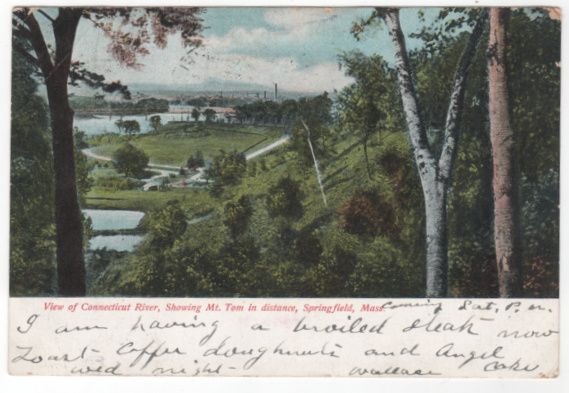 View of Connecticut River, Showing Mt. Tom in distance, Springfield, Mass. Coming Sat, P. m.
I am having a broiled steak now
Toast - Coffee. doughnuts and Angel
wed night - Wallace Cake